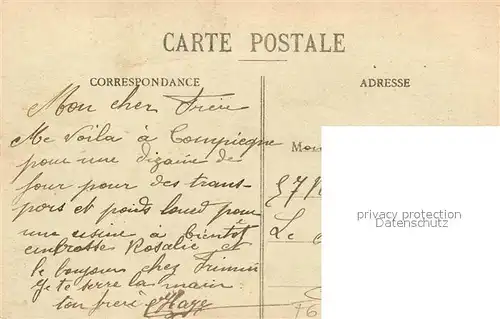 CARTE POSTALE
CORRESPONDANCE
ADRESSE
Mon cher Frere
Me Voila à Compiegne
pour une dizaine de
jour pour des trans-
pors et poids lourd pour
une usine à bientôt
embrasse Rosalie et
le bonjour chez
Je te serre la main
ton frere
57
Le
privacy protection